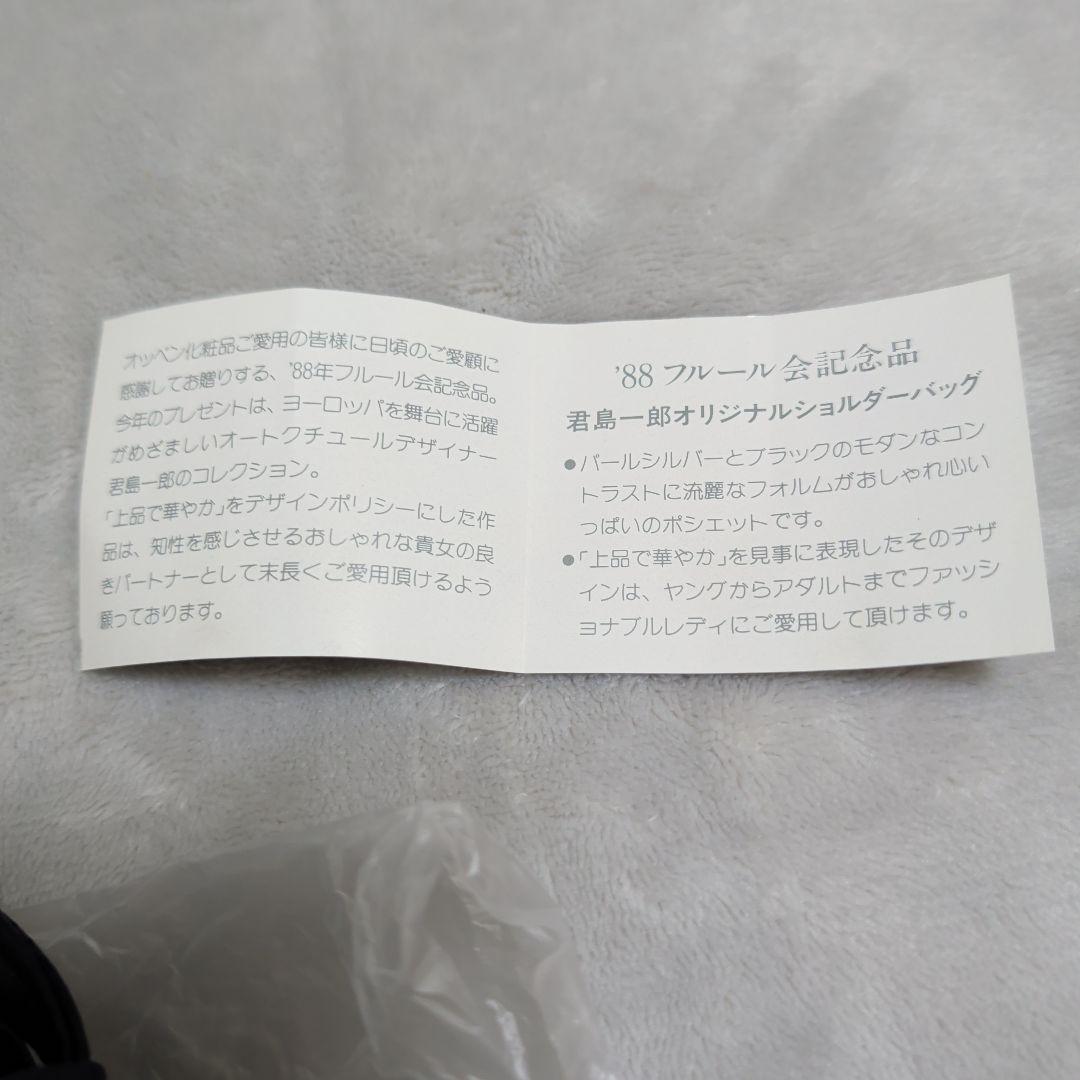 オッペン化粧品ご愛用の皆様に日頃のご愛顧に
感謝してお贈りする、'88年フルール会記念品。
今年のプレゼントは、ヨーロッパを舞台に活躍
がめざましいオートクチュールデザイナー
君島一郎のコレクション。
「上品で華やか」をデザインポリシーにした作
品は、知性を感じさせるおしゃれな貴女の良
きパートナーとして末長くご愛用頂けるよう
願っております。
'88 フルール会記念品
君島一郎オリジナルショルダーバッグ
●パールシルバーとブラックのモダンなコン
トラストに流麗なフォルムがおしゃれ心い
っぱいのポシェットです。
●「上品で華やか」を見事に表現したそのデザ
インは、ヤングからアダルトまでファッシ
ョナブルレディにご愛用して頂けます。